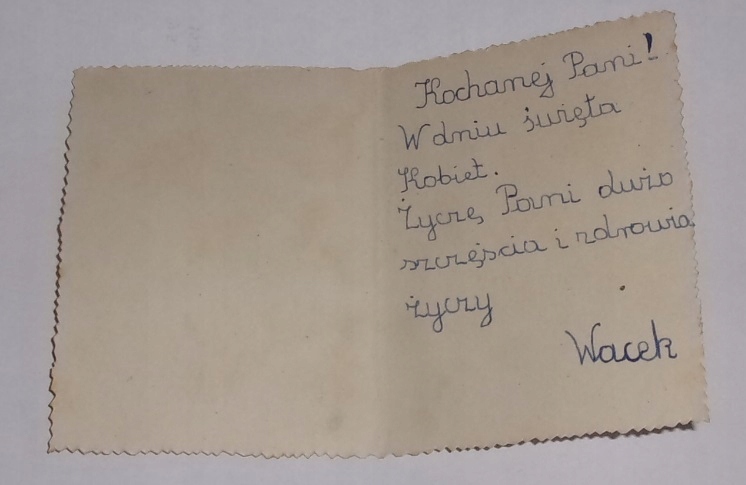 Kochanej Pani!
W dniu święta
Kobiet.
Życzę Pani dużo
szczęścia i zdrowia
życzy
Wacek